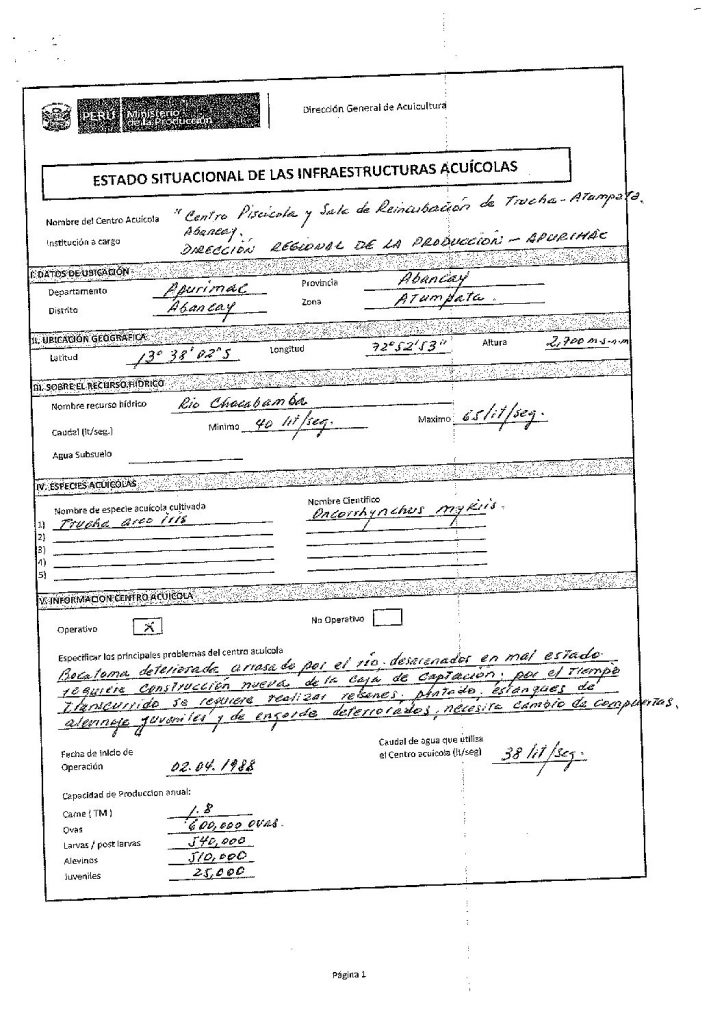 PERÚ Ministerio de la Producción
Dirección General de Acuicultura
ESTADO SITUACIONAL DE LAS INFRAESTRUCTURAS ACUÍCOLAS
Nombre del Centro Acuícola "Centro Piscicola y Sala de Reincubación de Trucha - Atumpata.
Abancay.
Institución a cargo DIRECCIÓN REGIONAL DE LA PRODUCCIÓN - APURIMAC
I. DATOS DE UBICACIÓN
Departamento Apurimac Provincia Abancay
Distrito Abancay Zona Atumpata.
II. UBICACIÓN GEOGRÁFICA
Latitud 13° 38' 02" S Longitud 72° 52' 53" Altura 2,700 m.s.n.m
III. SOBRE EL RECURSO HÍDRICO
Nombre recurso hídrico Rio Chacabamba
Caudal (lt/seg.) Minimo 40 lit/seg. Maximo 65 lit/seg.
Agua Subsuelo
IV. ESPECIES ACUÍCOLAS
Nombre de especie acuícola cultivada Nombre Científico
1) Trucha arco iris Oncorhynchus mykiis.
2)
3)
4)
5)
V. INFORMACION CENTRO ACUICOLA
Operativo X No Operativo
Especificar los principales problemas del centro acuícola
Bocatoma deteriorada arrasado por el río. desarenados en mal estado.
requiere construcción nueva de la caja de captación; por el tiempo
transcurrido se requiere realizar resanes, pintado, estanques de
alevinaje juveniles y de engorde deteriorados, necesita cambio de compuertas.
Fecha de inicio de
Operación 02.04.1988
Caudal de agua que utiliza
el Centro acuícola (lt/seg) 38 lit/seg.
Capacidad de Produccion anual:
Carne ( TM ) 1.8
Ovas 600,000 ovas.
Larvas / post larvas 540,000
Alevinos 510,000
Juveniles 25,000
Página 1